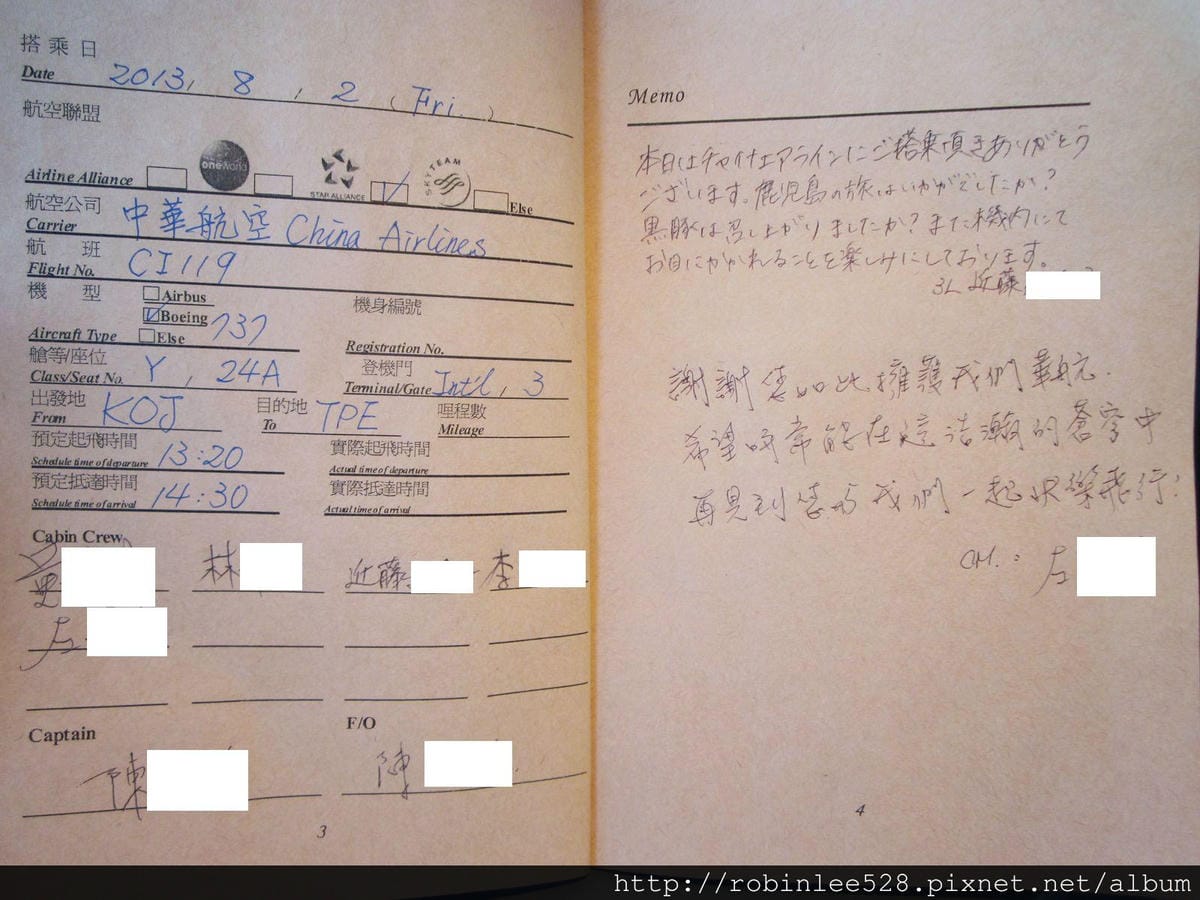 搭乘日
Date 2013, 8, 2 (Fri.)
航空聯盟
Airline Alliance oneworld STAR ALLIANCE SKYTEAM Else
航空公司
Carrier 中華航空 China Airlines
航班
Flight No. CI119
機型 Airbus 機身編號
Boeing 737
Aircraft Type Else Registration No.
艙等/座位 登機門
Class/Seat No. Y, 24A Terminal/Gate Intl, 3
出發地 目的地 哩程數
From KOJ To TPE Mileage
預定起飛時間 實際起飛時間
Schedule time of departure 13:20 Actual time of departure
預定抵達時間 實際抵達時間
Schedule time of arrival 14:30 Actual time of arrival
Cabin Crew
林 近藤 李
左
Captain F/O
陳 陳
3
Memo
本日はチャイナエアラインにご搭乗頂きありがとう
ございます。鹿児島の旅はいかがでしたか?
黒豚は召し上がりましたか?また機内にて
お目にかかれることを楽しみにしております。
3L 近藤
謝謝您如此擁護我們華航.
希望時常能在這浩瀚的蒼穹中
再見到您與我們一起快樂飛行!
CM.: 左
4
http://robinlee528.pixnet.net/album